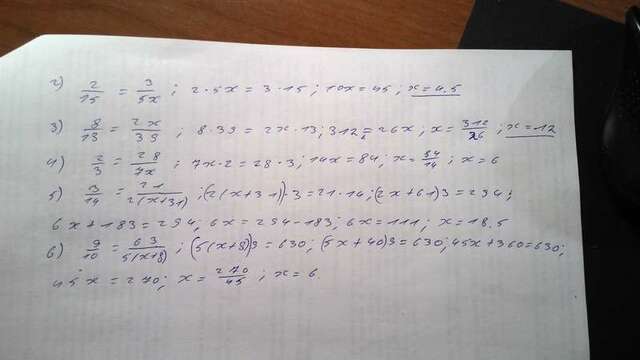 2) 2/15 = 3/5x ; 2·5x = 3·15 ; 10x = 45 ; x = 4.5
3) 8/13 = 2x/39 ; 8·39 = 2x·13 ; 312 = 26x ; x = 312/26 ; x = 12
4) 2/3 = 28/7x ; 7x·2 = 28·3 ; 14x = 84 ; x = 84/14 ; x = 6
5) 3/14 = 21/2(x+31) ; (2(x+31))3 = 21·14 ; (2x+61)3 = 294 ;
6x+183 = 294 ; 6x = 294-183 ; 6x = 111 ; x = 18.5
6) 9/10 = 63/5(x+8) ; (5(x+8))9 = 630 ; (5x+40)9 = 630 ; 45x+360 = 630 ;
45x = 270 ; x = 270/45 ; x = 6